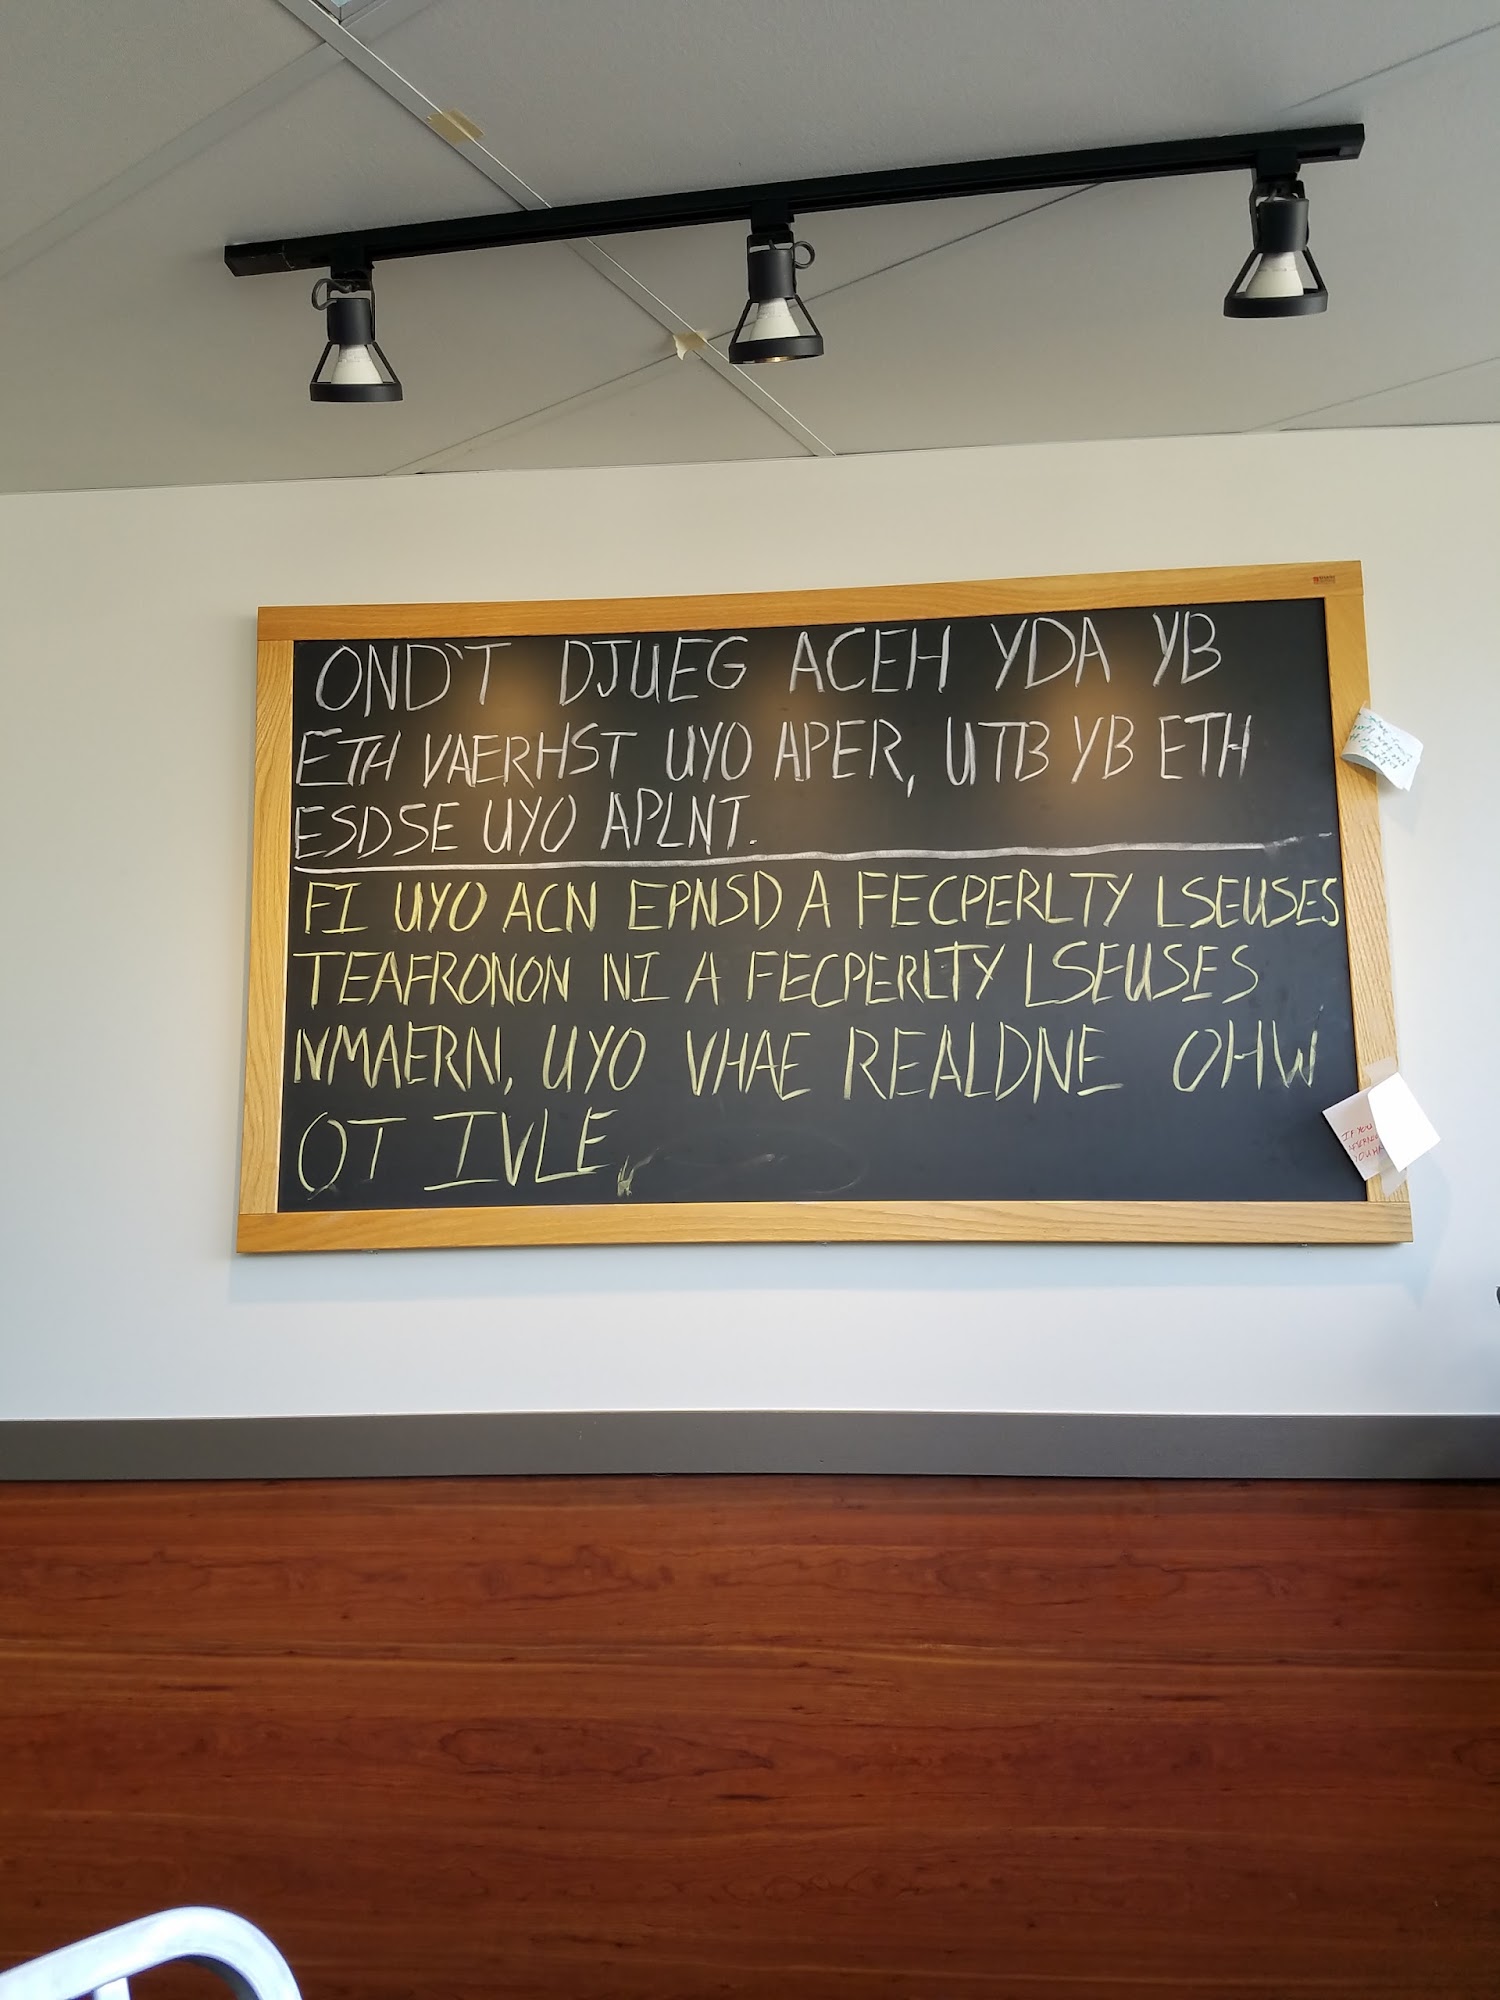 OND'T DJUEG ACEH YDA YB
ETH VAERHST UYO APER, UTB YB ETH
ESDSE UYO APLNT.
FI UYO ACN EPNSD A FECPERLTY LSEUSES
TEAFRONON NI A FECPERLTY LSEUSES
NMAERN, UYO VHAE REALDNE OHW
OT IVLE.
IF YOU
YOU HA